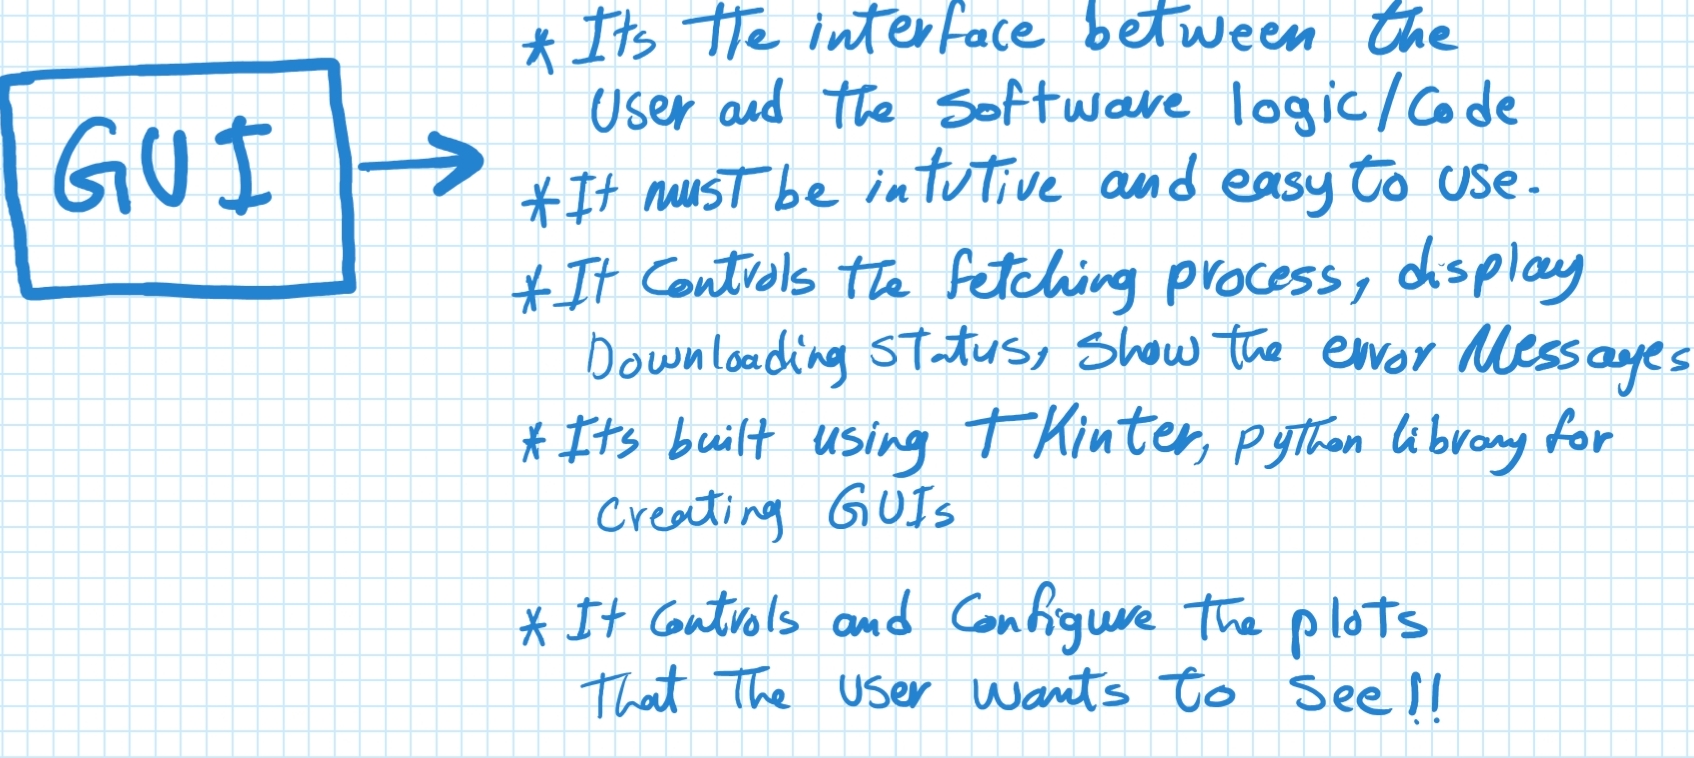 GUI
* Its the interface between the
User and the software logic/Code
* It must be intutive and easy to use.
* It Controls the fetching process, display
Downloading status, Show the error Messages
* Its built using TKinter, python library for
Creating GUIs
* It Controls and Configure the plots
That The User wants to See!!